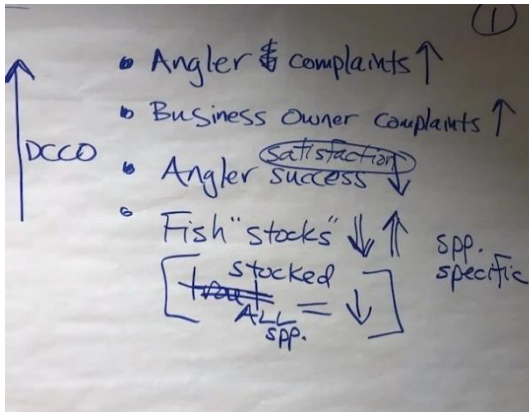 1
• Angler & complaints ↑
• Business Owner Complaints ↑
↑ DCCO
satisfaction
• Angler success ↓
• Fish "stocks" ↓ ↑ spp. specific
[ stocked
trout
ALL = ↓ ]
spp.